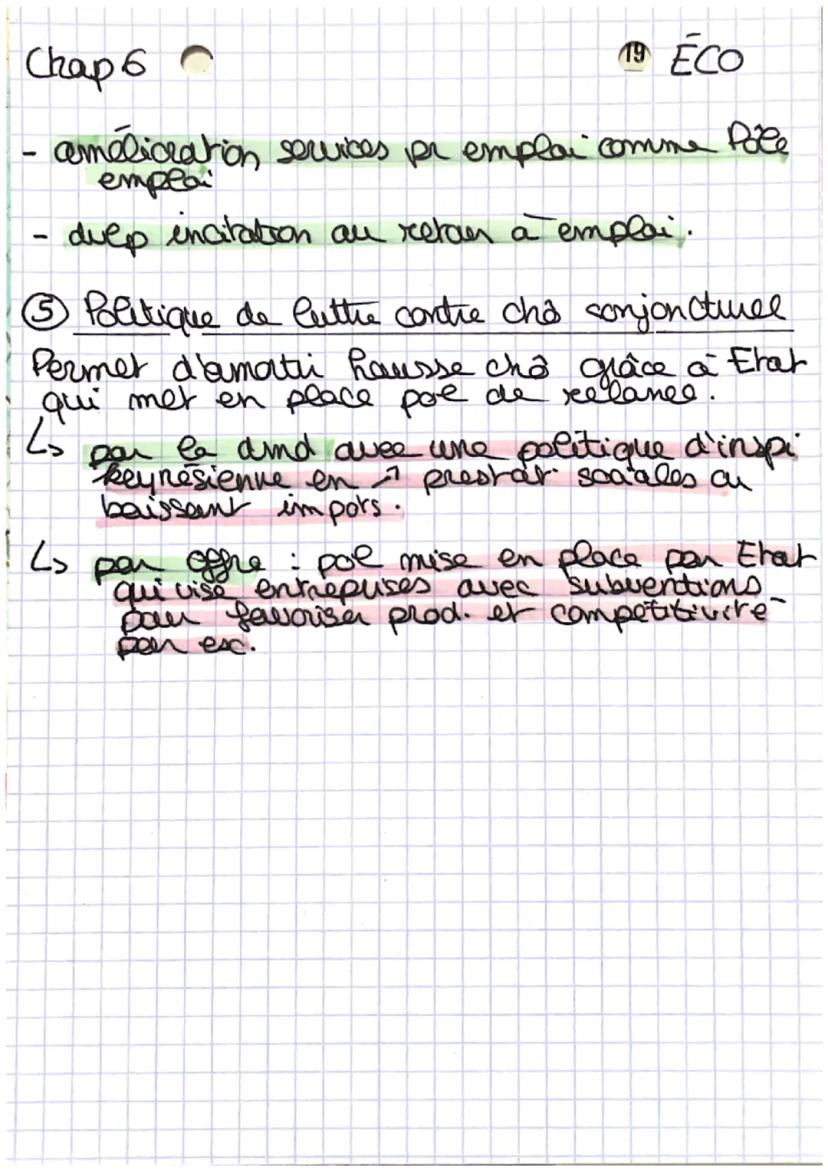 Chap 6
19 ÉCO
- amélioration services pr emploi comme Pôle
emploi
- dvep incitation au retour à emploi.
⑤ Politique de lutte contre chô conjoncturel
Permet d'amortir hausse chô grâce à Etat
qui met en place pol de relance.
↳ par la dmd avec une politique d'inspi
keynésienne en ↗ prestat° sociales ou
baissant impots.
↳ par offre : pol mise en place par Etat
qui vise entreprises avec subventions
pour favoriser prod. et compétitivité
par esc.